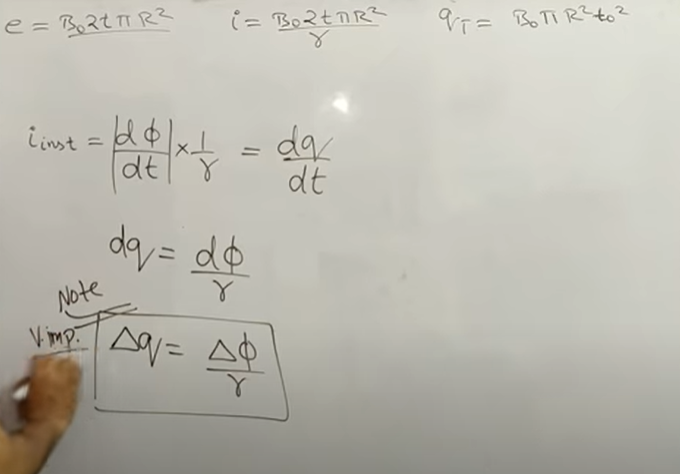 e = B₀2tπR² i = B₀2tπR²/r q_T = B₀πR²t₀²
i_inst = |dϕ/dt| × 1/r = dq/dt
dq = dϕ/r
Note
V.imp.
Δq = Δϕ/r